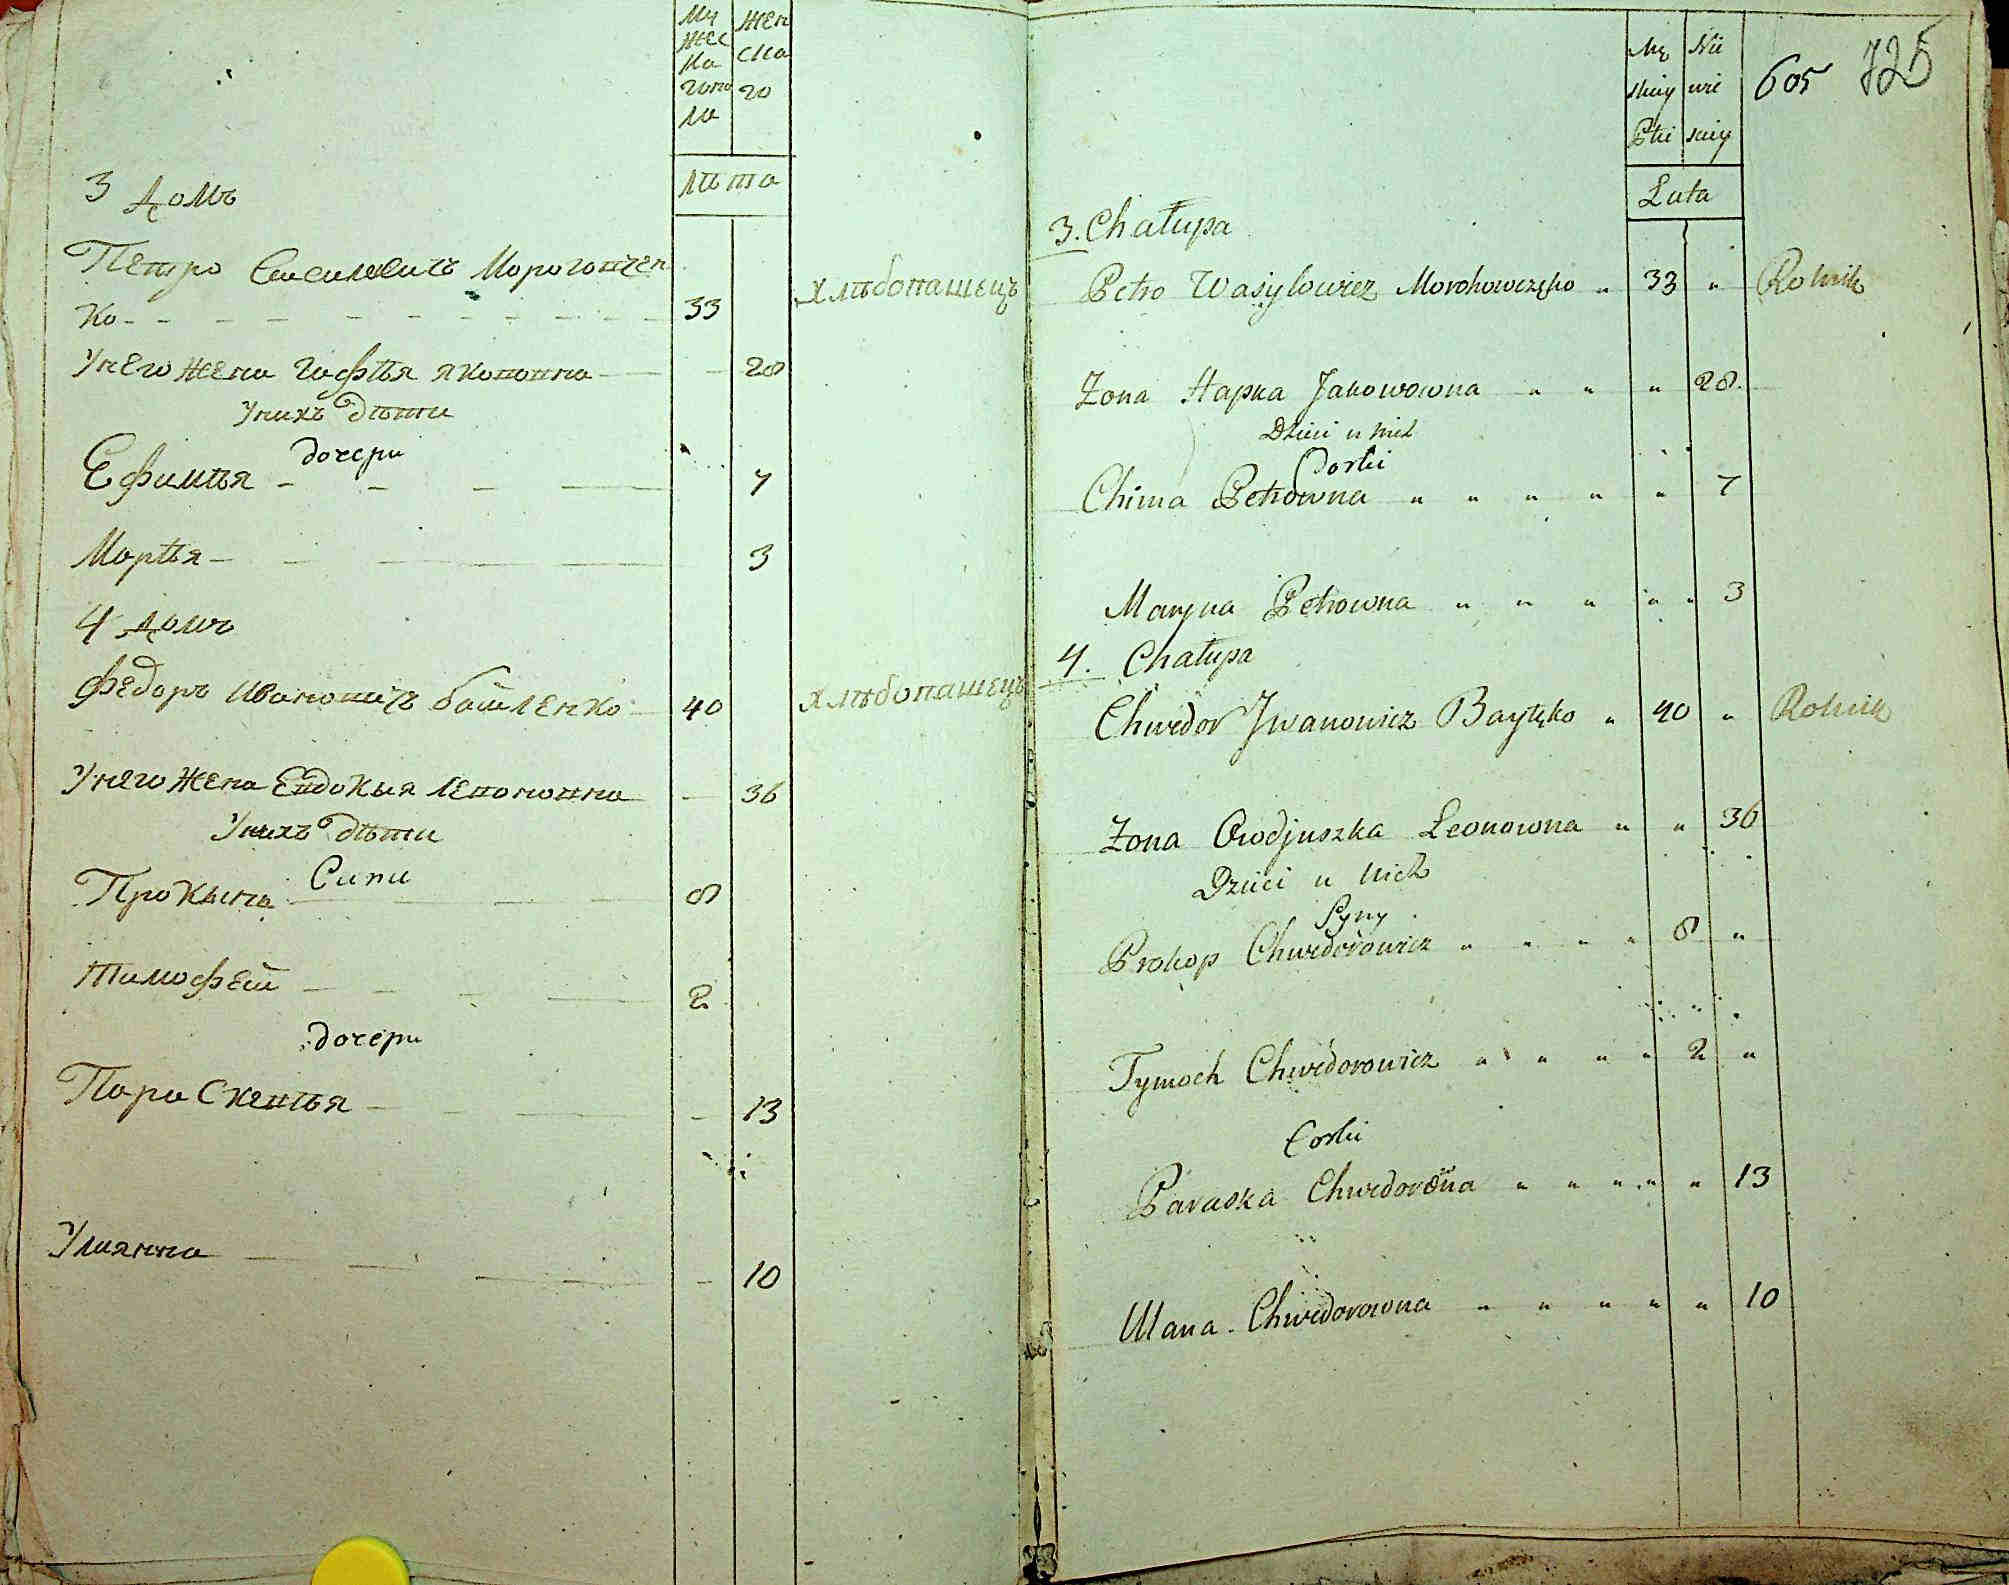 Му
жес
ка
гопо
ла
Жен
ска
го
лѣта
3 домъ
Петро Василевичъ Мороговчен
ко 33 хлѣбопашецъ
У него жена Гафѣя Якововна 28
У нихъ дѣти
дочери
Ефимѣя 7
Марѣя 3
4 домъ
Федоръ Ивановичъ Байленко 40 хлѣбопашецъ
У него жена Евдокыя Левоновна 36
У нихъ дѣти
Сини
Прокыпа 8
Тимофей 2
дочери
Параскевѣя 13
Улиянна 10
Mę
skiey
Płci
Nie
wie
sciey
605 725
Lata
3. Chałupa
Petro Wasylowicz Morohowczęko " 33 " Rolnik
Żona Hapka Jakowowna " " " 28
Dzieci u nich
Corki
Chima Petrowna " " " " " 7
Maryna Petrowna " " " " " 3
4. Chałupa
Chwedor Jwanowicz Baylęko " 40 " Rolnik
Żona Owdjuszka Leonowna " " 36
Dzieci u nich
Syny
Prokop Chwedorowicz " " " " 8 "
Tymoch Chwedorowicz " " " " 2 "
Corki
Paraska Chwedorowna " " " " " 13
Ulana Chwedorowna " " " " " 10